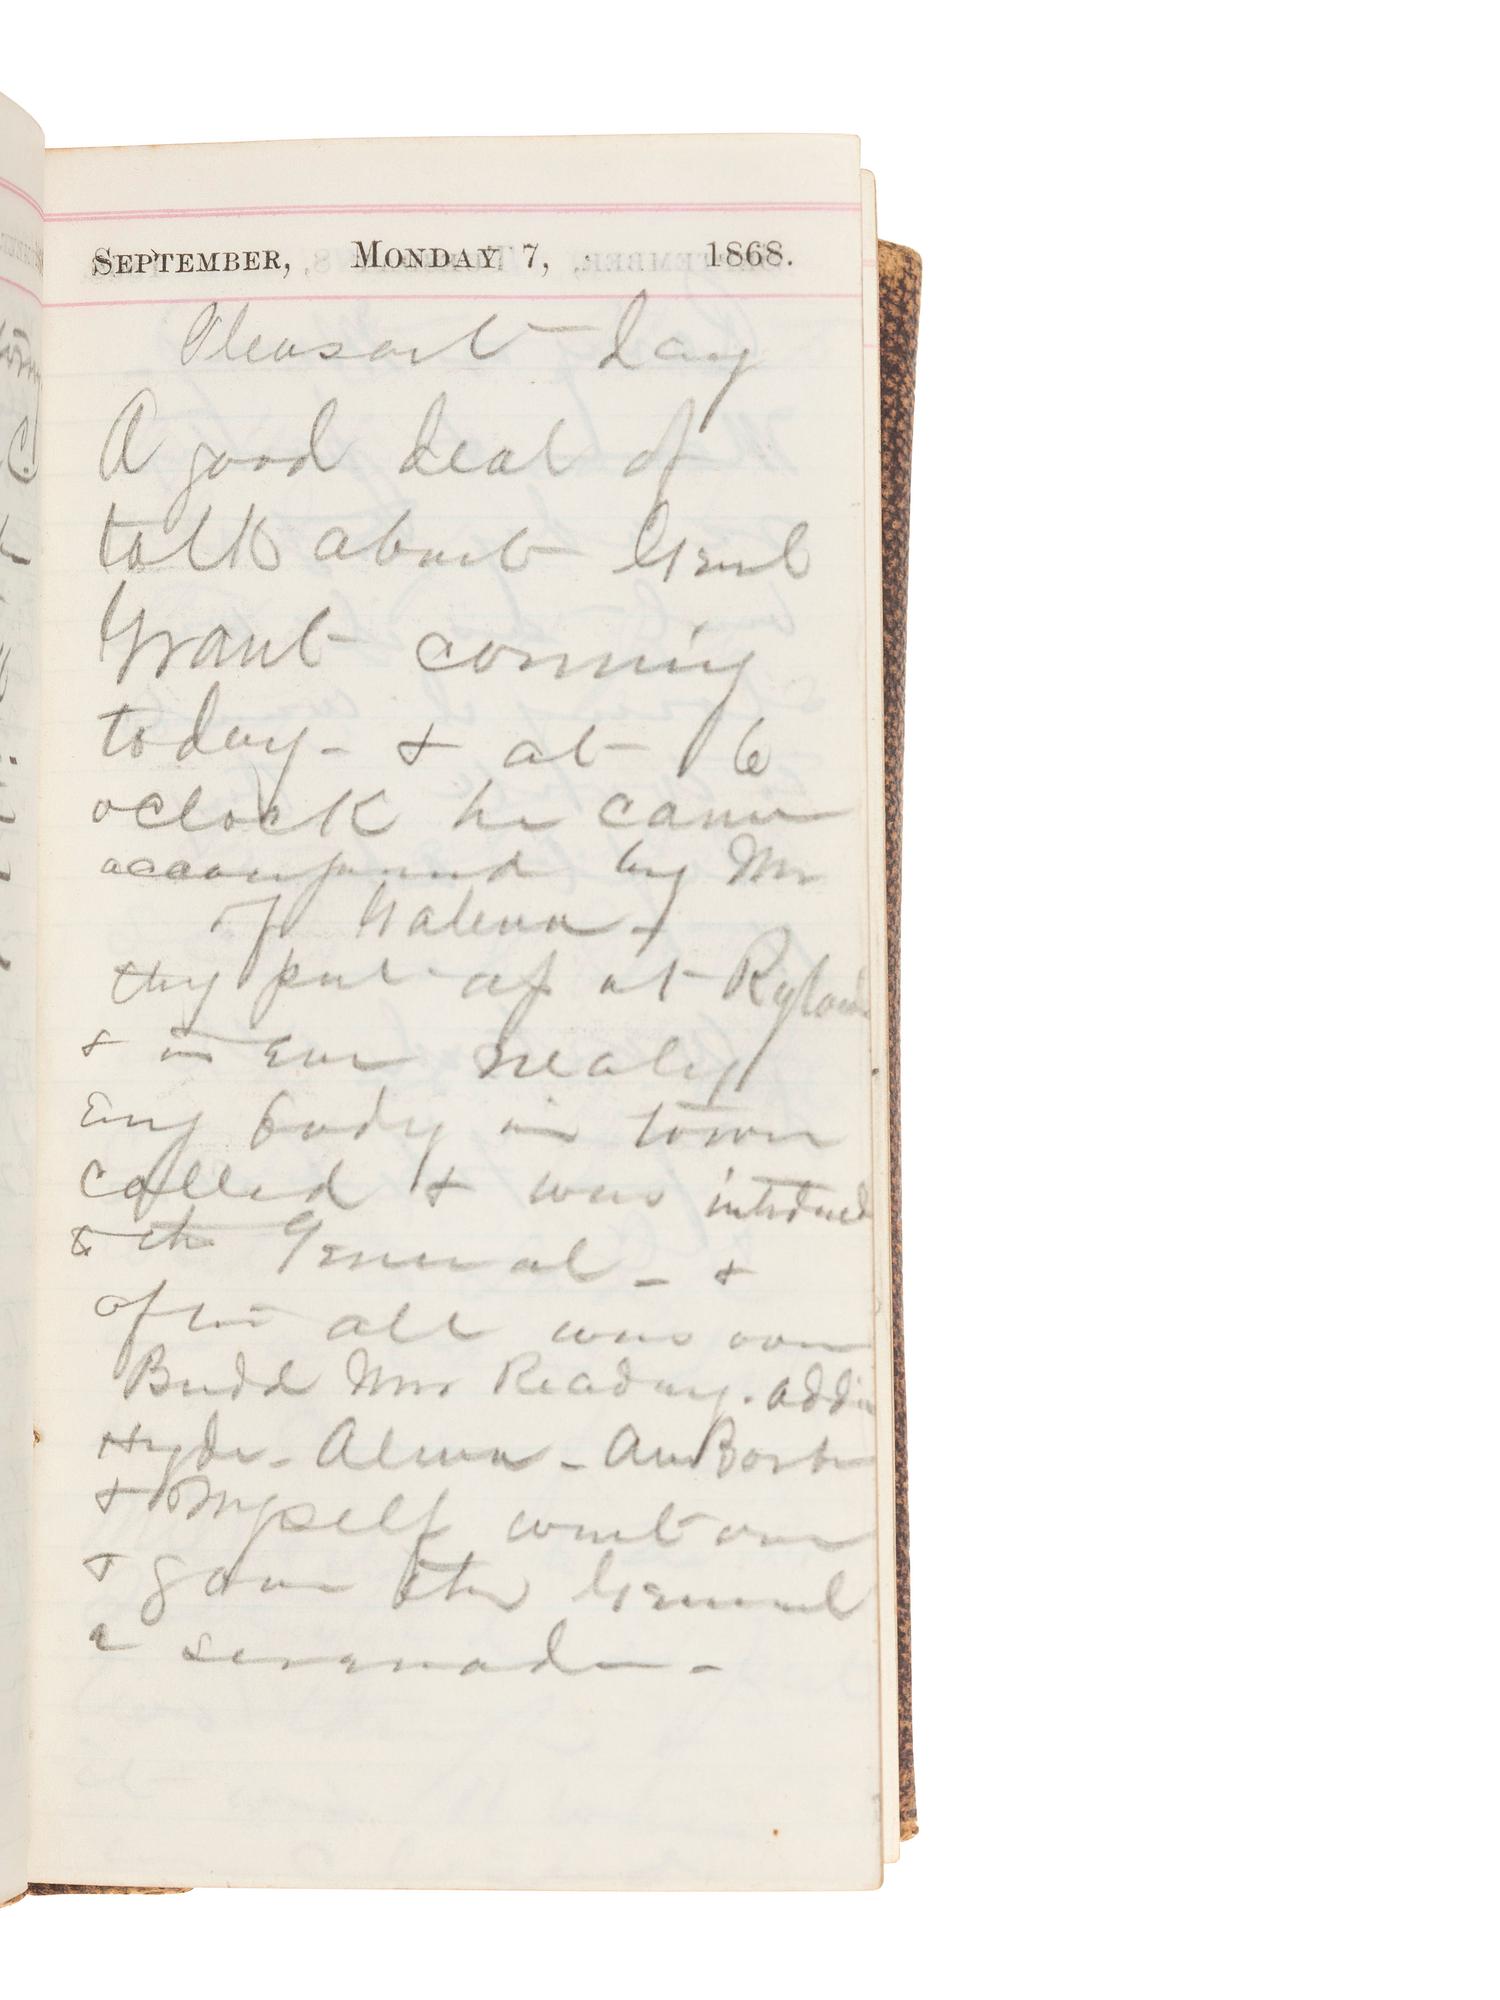 September, Monday 7, 1868.
Pleasant day
A good deal of
talk about Genl
Grant coming
today - & at 6
oclock he came
by Mr
of Galena -
thy put up at
& in Eve nealy
Evy body in town
called & was
to the General - &
after all was over
Budd Mrs Readuy. Addie
Hyde - Alma -
& Myself went over
& gave the General
a serenade -